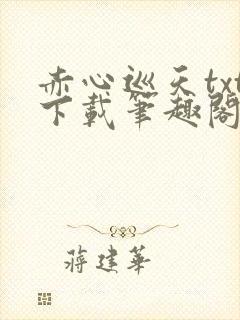 赤心巡天txt
下載筆趣閣
蔣建華